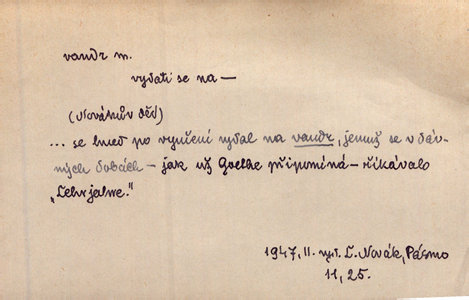 vandr m.
vydati se na —
(Novákův děd)
... se hned po vyučení vydal na vandr, jemuž se v dáv-
ných dobách — jak už Goethe připomíná — říkávalo
„Lehrjahre."
1947, II. vyd. L. Novák, Pásmo
11, 25.